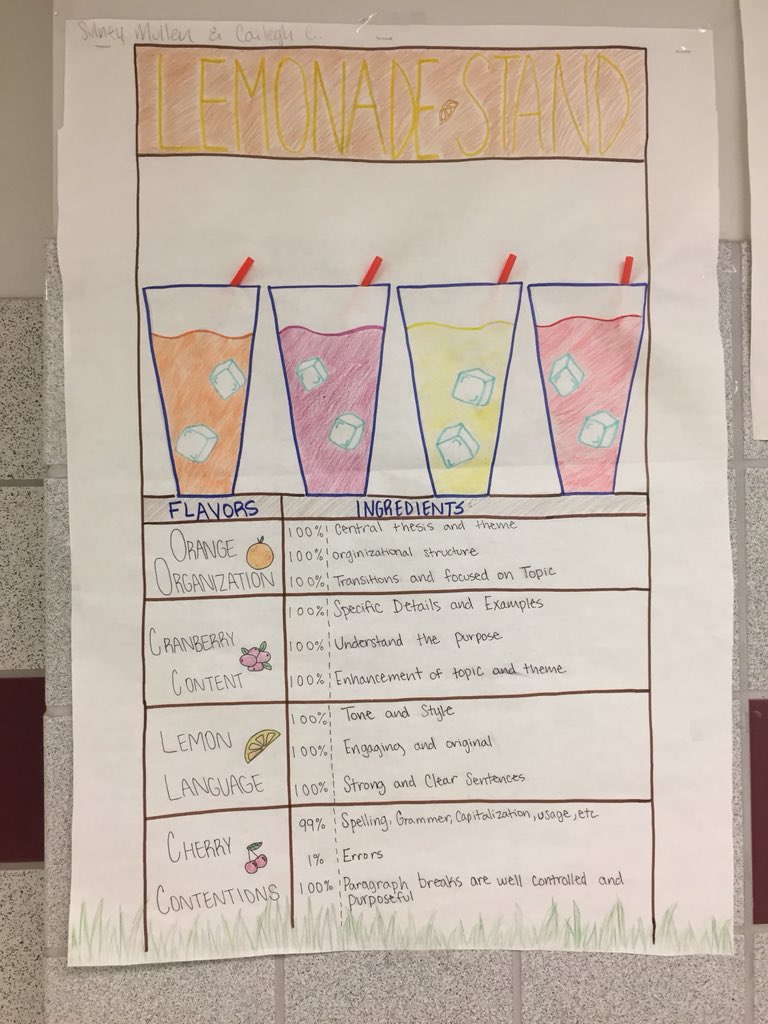 Sidney Mullen & Cailegh C.
LEMONADE STAND
FLAVORS
INGREDIENTS
ORANGE
ORGANIZATION
100% Central thesis and theme
100% orginizational structure
100% Transitions and focused on Topic
CRANBERRY
CONTENT
100% Specific Details and Examples
100% Understand the purpose
100% Enhancement of topic and theme
LEMON
LANGUAGE
100% Tone and Style
100% Engaging and original
100% Strong and Clear Sentences
CHERRY
CONTENTIONS
99% Spelling, Grammer, Capitalization, usage, etc
1% Errors
100% Paragraph breaks are well controlled and
purposeful